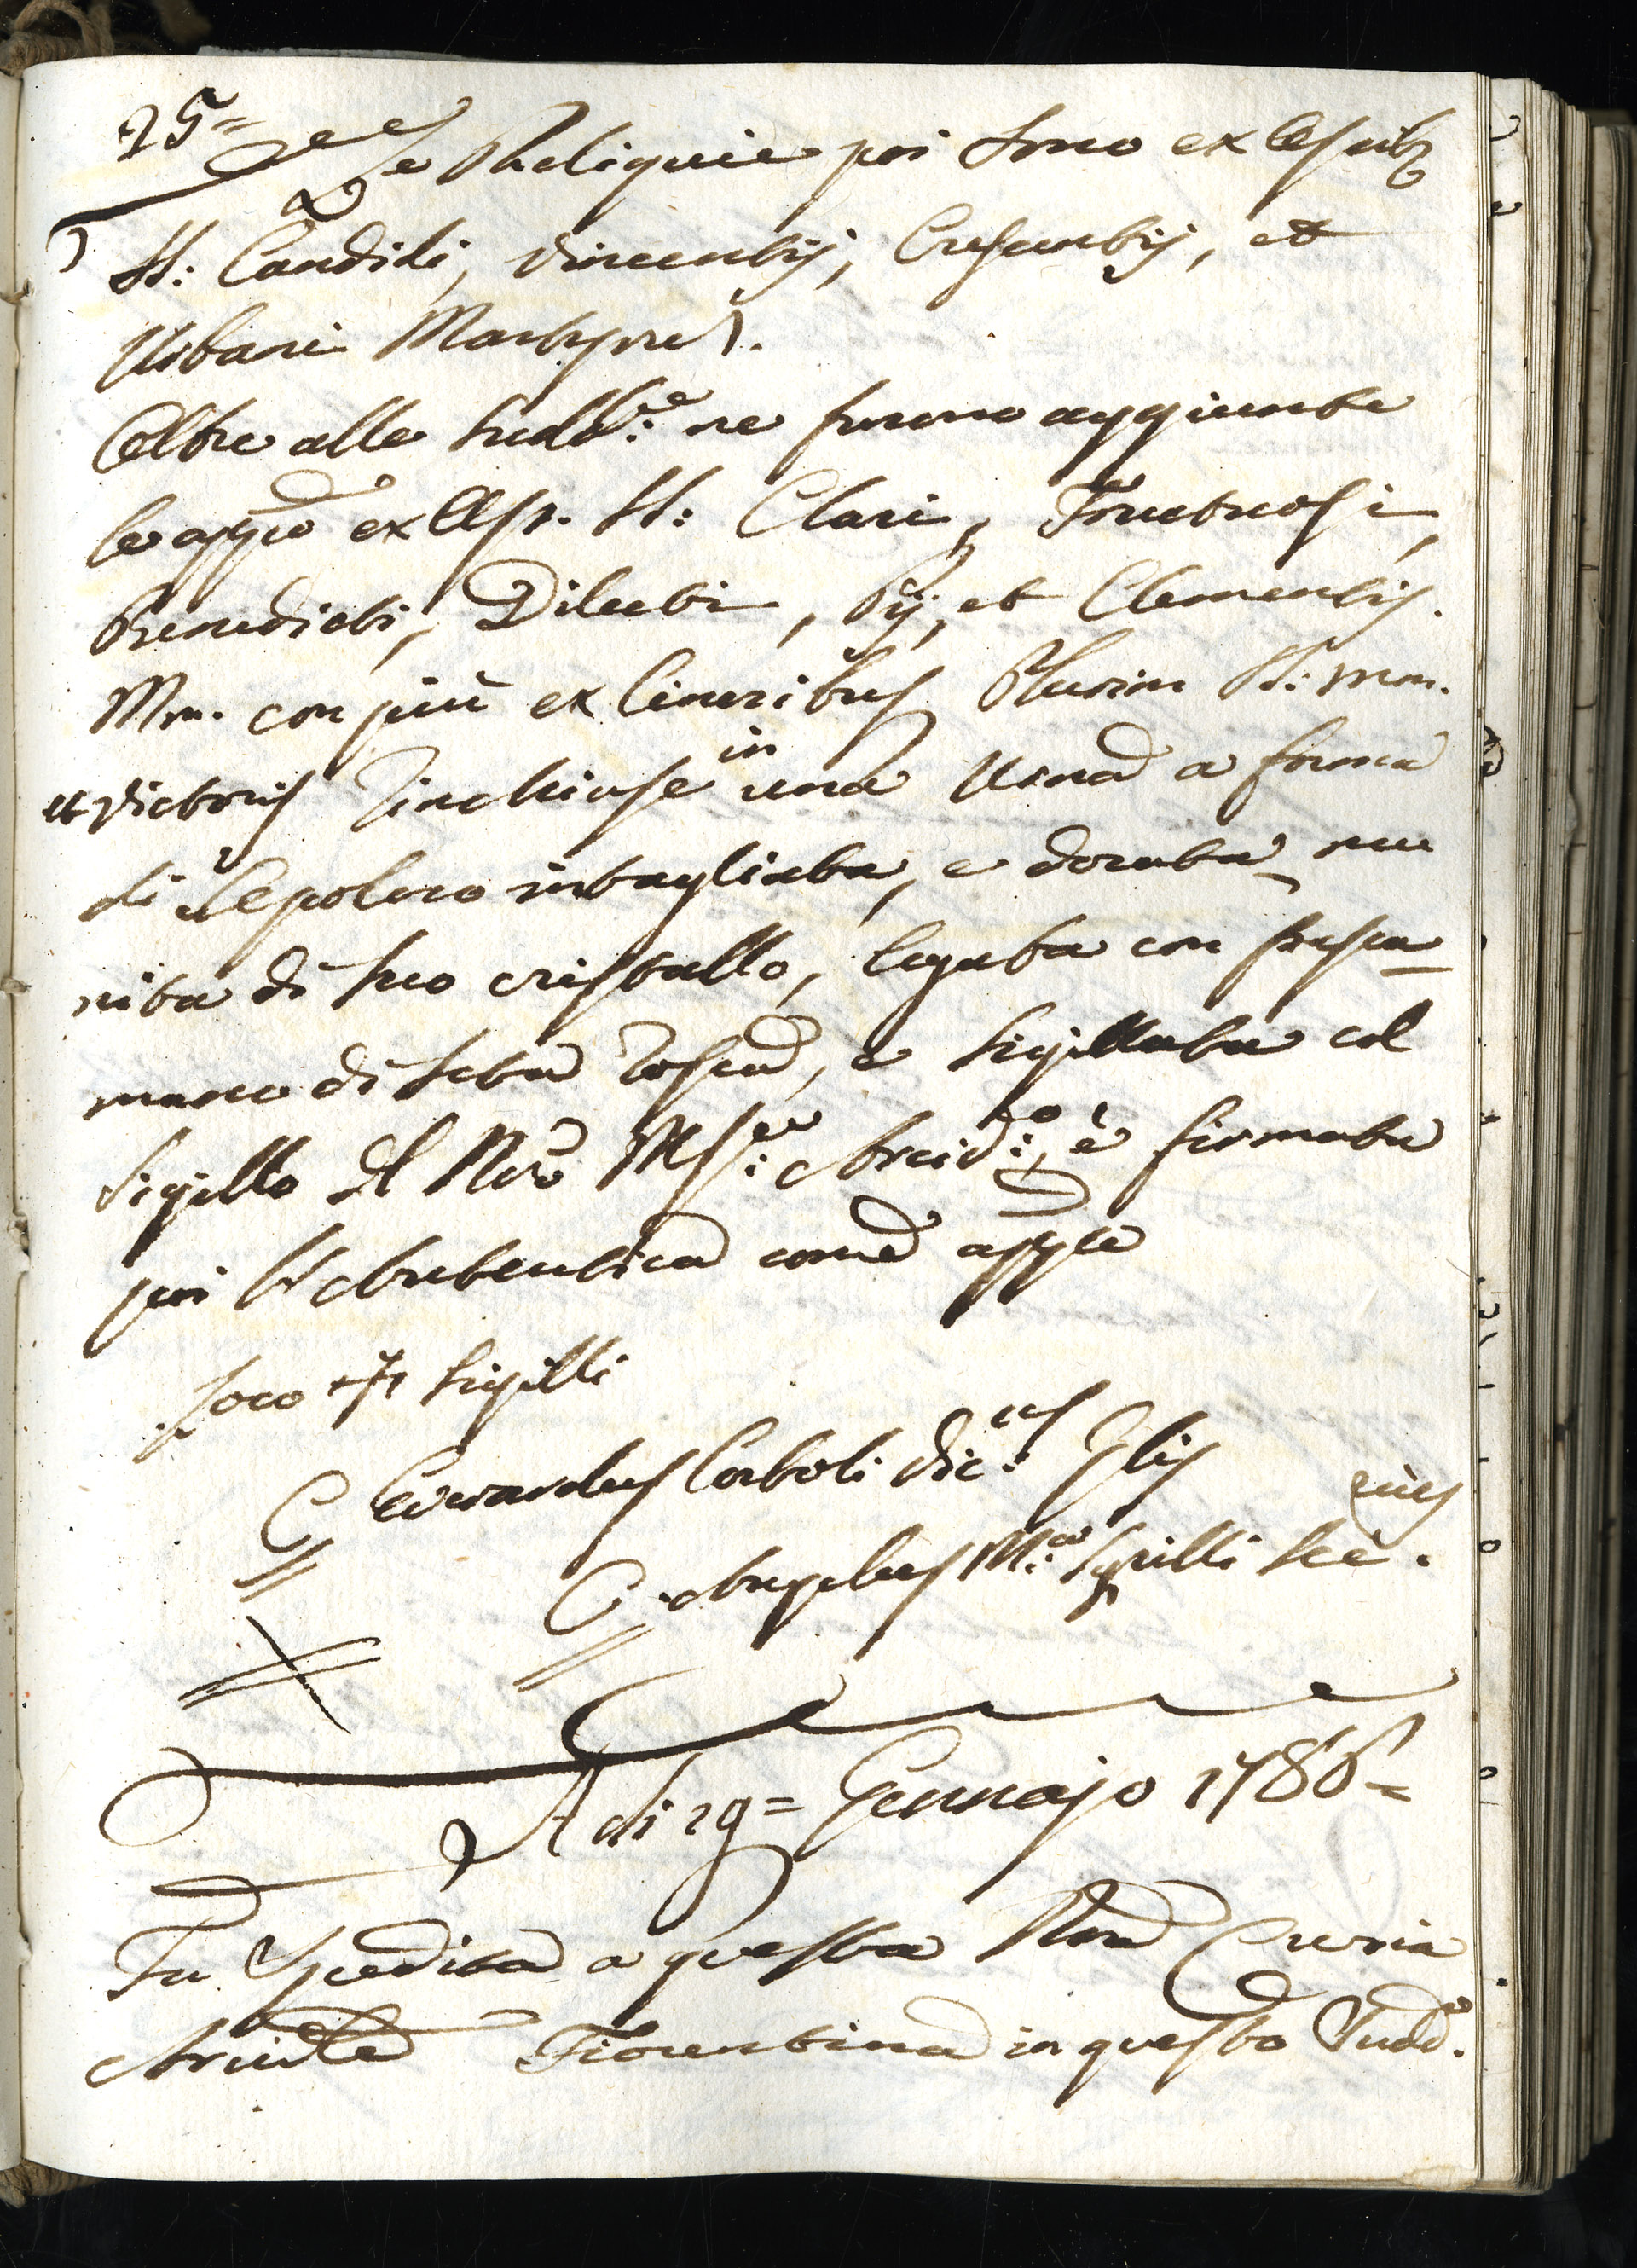 25=
Le Reliquie poi sono ex Ossib:
SS: Candidi, Vincentij, Crescentij, et
Urbani Martyrũ.
Oltre alle sudd:e ne furono aggiunte
le app.o ex Oss. SS: Clari, Fructuosi,
Benedicti, Dilecti, Pij, et Clementis.
Mm. con più ex Cineribus Plurim SS: Mm.
et Victoris Inchiuse in una Urna a forma
di Sepolcro intagliata, e dorata mu
nita di suo cristallo, legata con fresca
mano di seta rossa, e sigillata col
Sigillo del Nro Mr:e Arcid:o, è firmata
poi l'Autentica come app.e
Loco + Sigilli
Edwardus Corboli Vic:us Glis
Angelus M:a Sgrilli Sec:rius
Adi 19= Gennajo 1786=
Fu Spedita a questa Nra Curia
Arcivle Fiorentina in questo Sudd.o